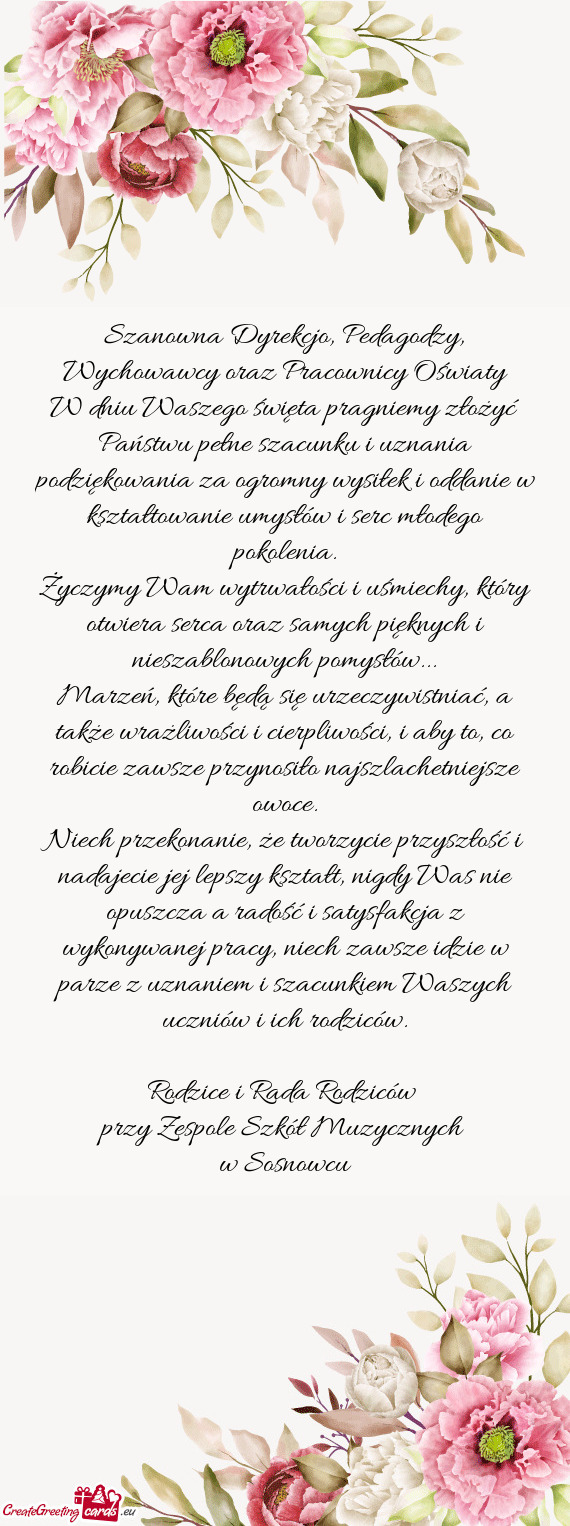 Szanowna Dyrekcjo, Pedagodzy,
Wychowawcy oraz Pracownicy Oświaty
W dniu Waszego święta pragniemy złożyć
Państwu pełne szacunku i uznania
podziękowania za ogromny wysiłek i oddanie w
kształtowanie umysłów i serc młodego
pokolenia.
Życzymy Wam wytrwałości i uśmiechy, który
otwiera serca oraz samych pięknych i
nieszablonowych pomysłów...
Marzeń, które będą się urzeczywistniać, a
także wrażliwości i cierpliwości, i aby to, co
robicie zawsze przynosiło najszlachetniejsze
owoce.
Niech przekonanie, że tworzycie przyszłość i
nadajecie jej lepszy kształt, nigdy Was nie
opuszcza a radość i satysfakcja z
wykonywanej pracy, niech zawsze idzie w
parze z uznaniem i szacunkiem Waszych
uczniów i ich rodziców.
Rodzice i Rada Rodziców
przy Zespole Szkół Muzycznych
w Sosnowcu
CreateGreeting cards .eu